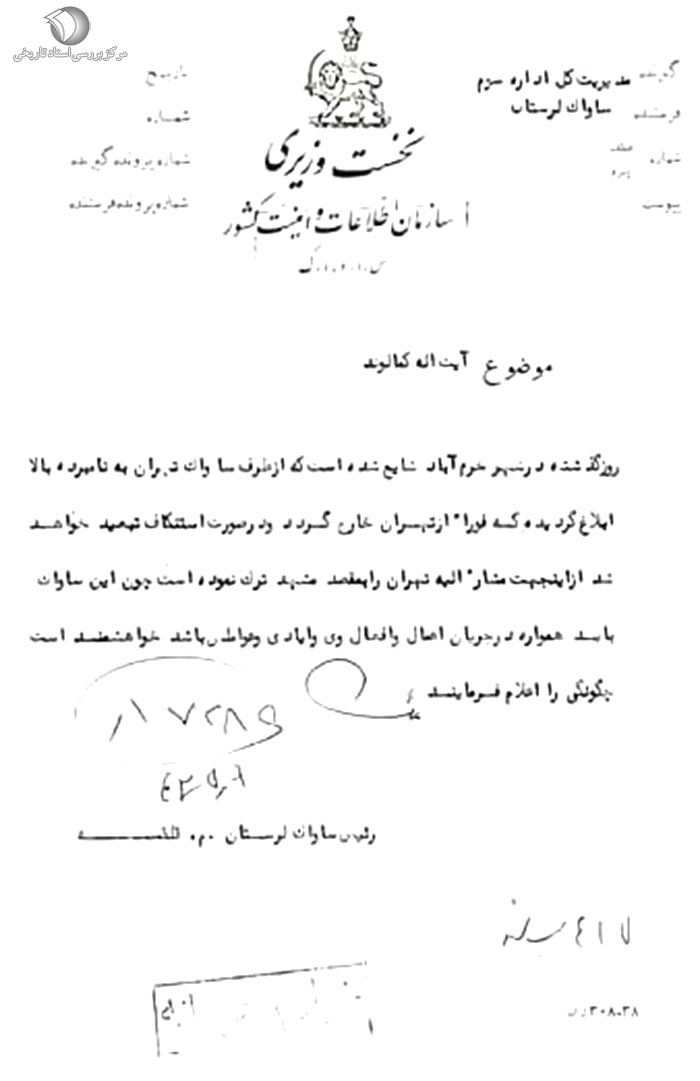 مرکز بررسی اسناد تاریخی
گیرنده مدیریت کل اداره سوم
فرستنده ساواك لرستان
شماره
پیوست
تاریخ
شماره
شماره پرونده گیرنده
شماره پرونده فرستنده
نخست وزیری
سازمان اطلاعات و امنیت کشور
موضوع آیت اله کمالوند
روز گذشته در شهر خرم آباد شایع شده است که از طرف ساواك تهران به نامبرده بالا
ابلاغ گردیده که فورا" از تهران خارج گردد و در صورت استنکاف تبعید خواهد
شد از اینجهت مشار" الیه تهران را بمقصد مشهد ترك نموده است چون این ساواك
باید همواره در جریان اعمال و افعال وی و ایادی و عواملش باشد خواهشمند است
چگونگی را اعلام فرمایند
رئیس ساواك لرستان م.